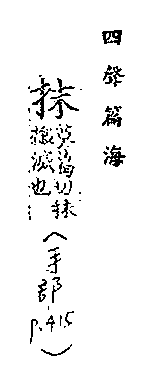 四聲篇海
抹
莫葛切抹
摋滅也
(手部 p.415)